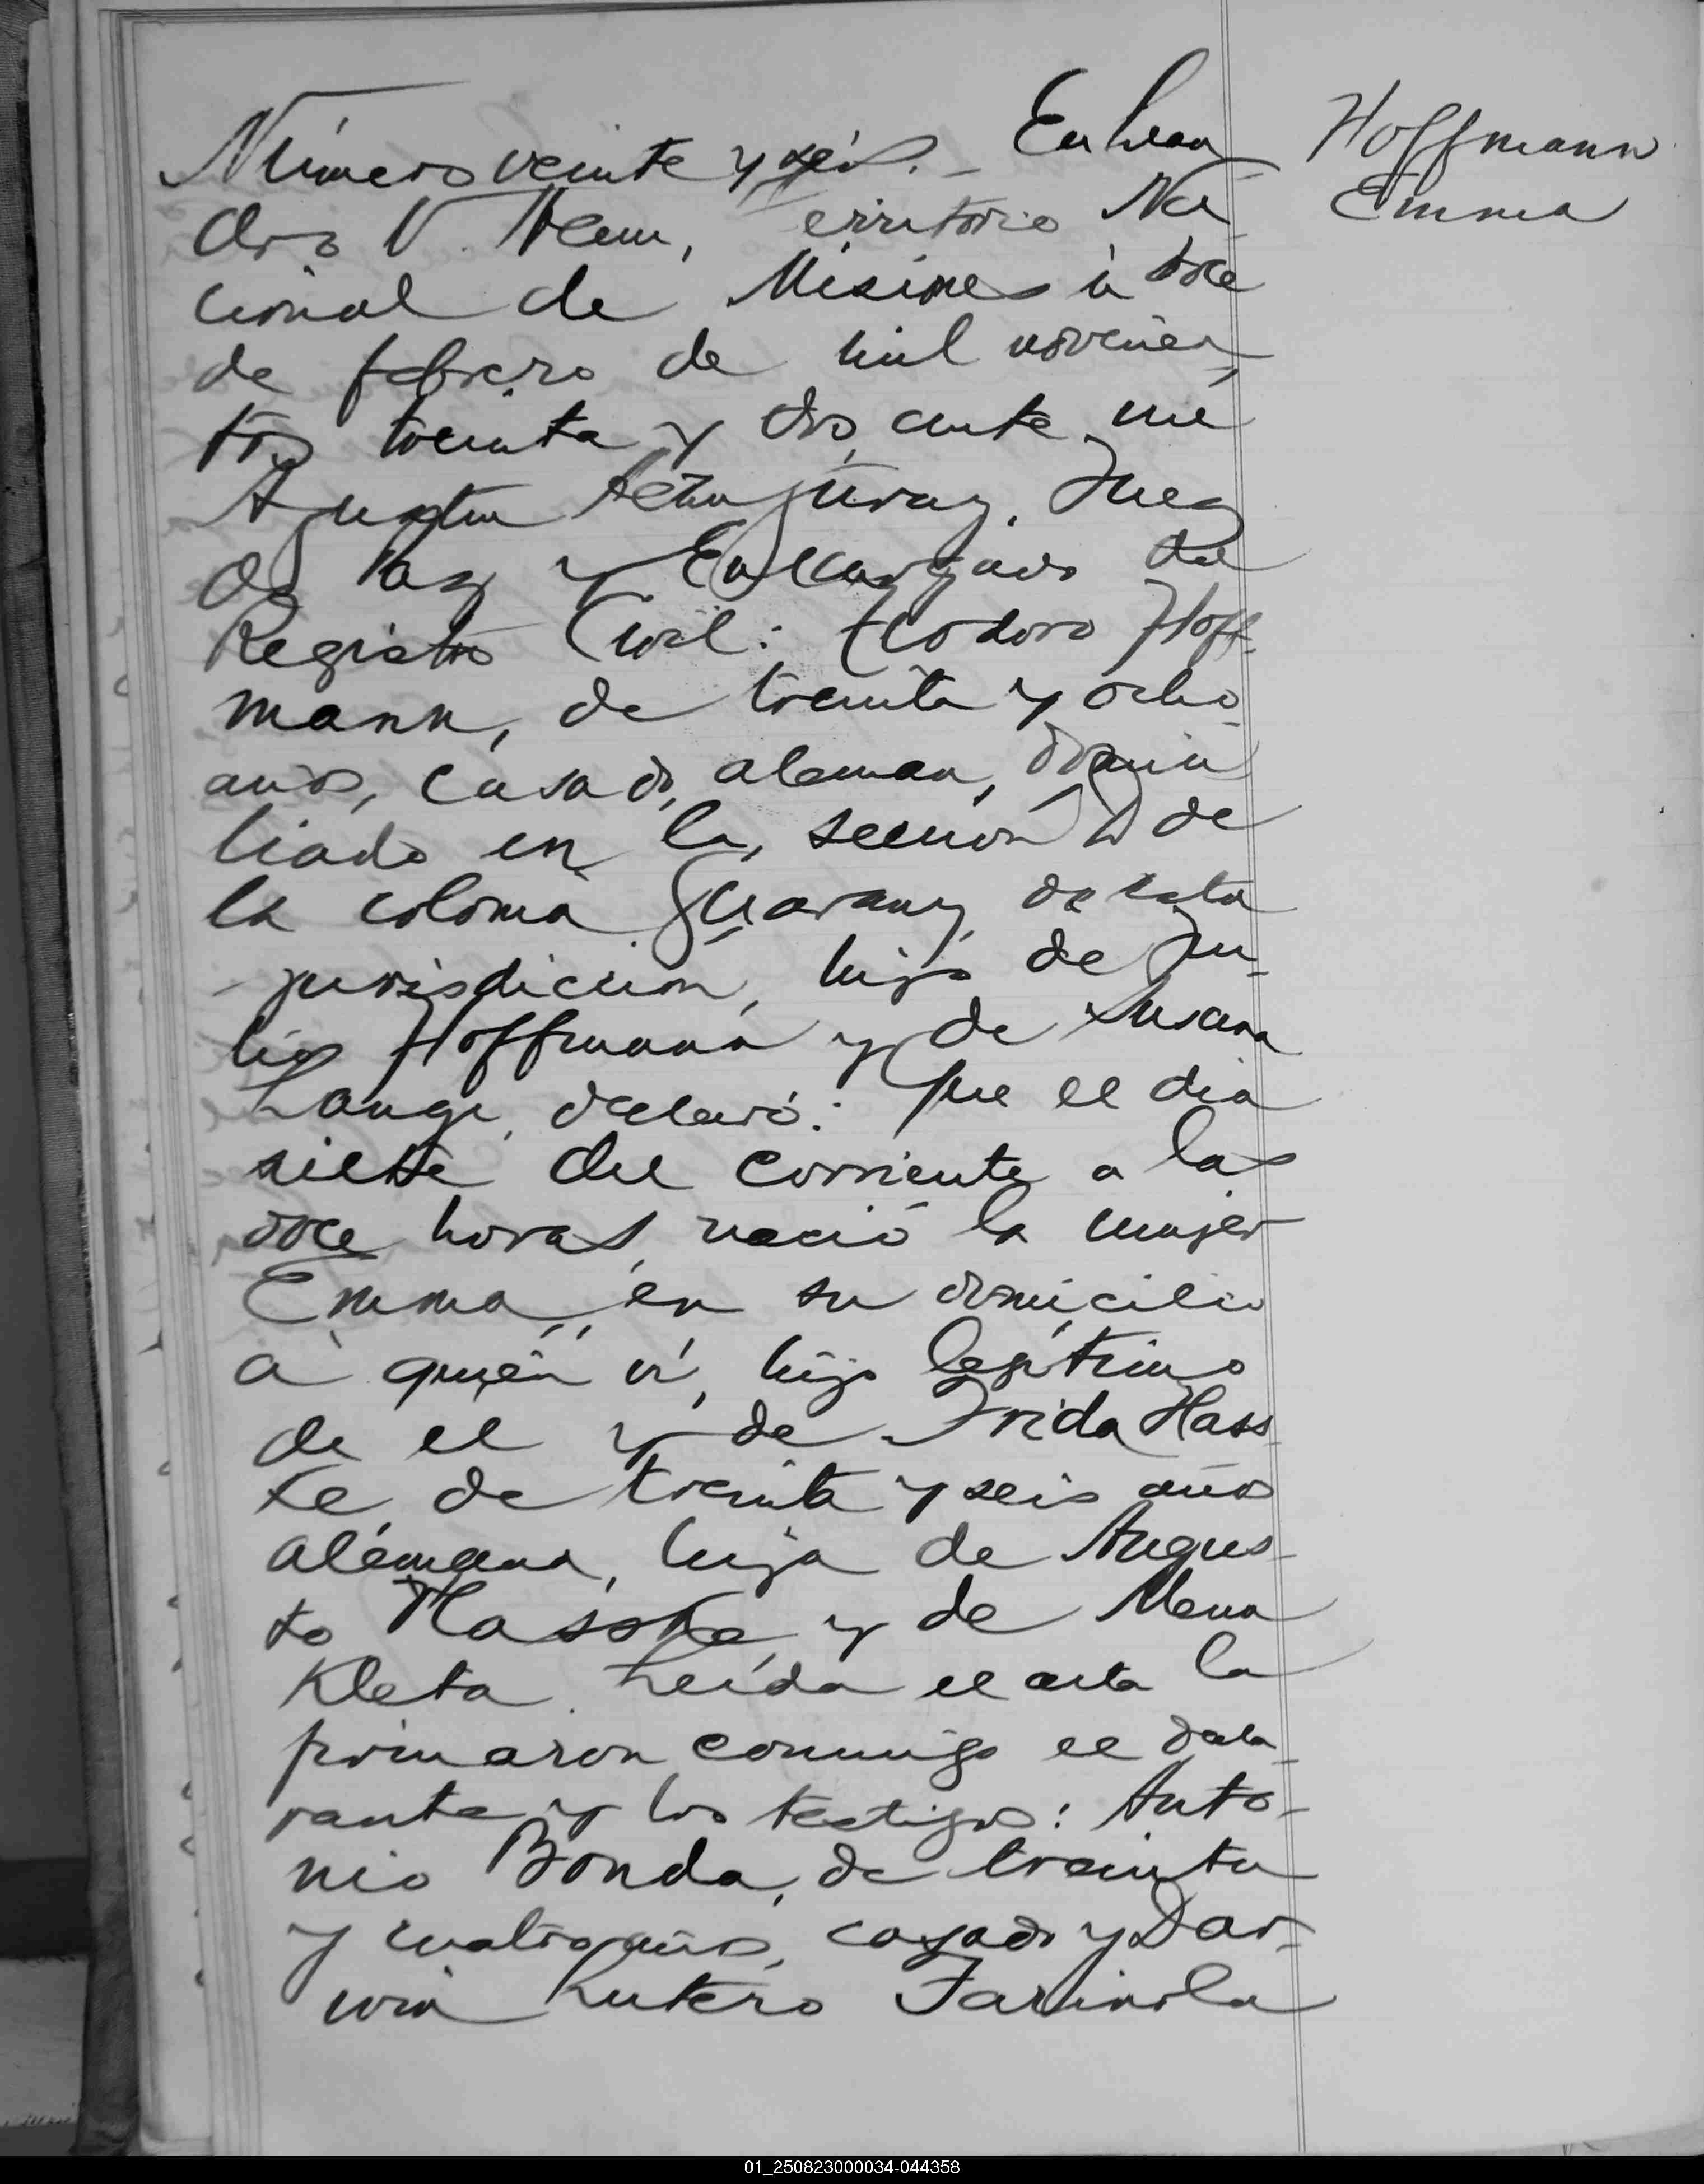 Número veinte y seis. - En Lean
Hoffmann
Emma
dro N. Alem, Territorio Na
cional de Misiones à doce
de febrero de mil novecien
tos treinta y dos, ante mi
Agustin Juez
de Paz y Encargado del
Registro Civil: Teodoro Hoff-
mann, de treinta y ocho
años, casado, aleman, domici
liado en la, sección D de
la colonia Guarany, de esta
jurisdiccion, hijo de Ju-
lio Hoffmann y de Susana
Lange, declaró: Que el dia
siete del corriente a las
doce horas, nació la mujer
Emma, en su domicilio
à quien vi, hijo legitimo
de el y de Frida Hass
ke, de treinta y seis años
alemana, hija de Augus-
to Hasske y de Mena
Kleta. Leída el acta la
firmaron conmigo el decla-
rante y los testigos: Anto-
nio Bonda, de treinta
y cuatro años, casado y Dar-
win Lutero Farinola
01_250823000034-044358